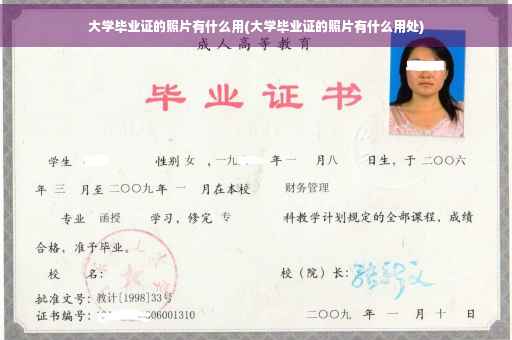 大学毕业证的照片有什么用(大学毕业证的照片有什么用处)
成人高等教育
毕业证书
学生 性别 女 ，一九 年 一 月八 日生，于 二〇〇六
年 三 月至 二〇〇九 年 一 月在本校 财务管理
专业 函授 学习，修完 专 科教学计划规定的全部课程，成绩
合格，准予毕业。
校 名： 校（院）长：
批准文号：教计[1998]33号
证书编号： 06001310 二〇〇九 年 一 月 十 日